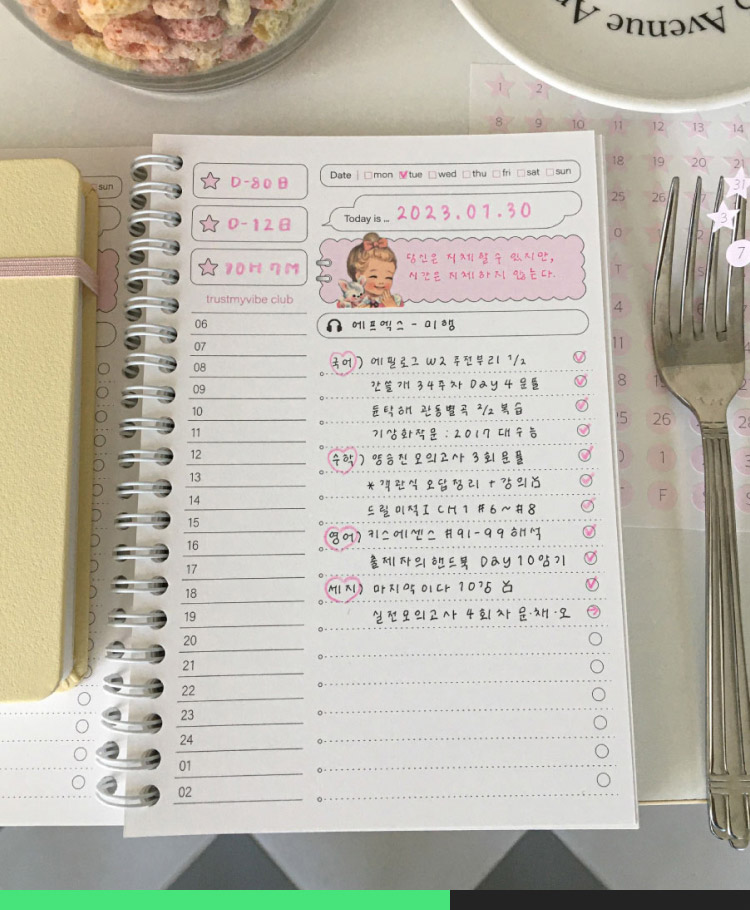 Avenue
sun
D-80日
D-12日
10H 7M
trustmyvibe club
Date | mon tue wed thu fri sat sun
Today is ... 2023.01.30
당신은 지체할 수 있지만,
시간은 지체하지 않는다.
에프엑스 - 미행
국어) 에필로그 W2 주전부리 1/2
간쓸개 34주차 Day 4 운틀
문탁해 관동별곡 2/2 복습
기상화작문 : 2017 대수능
수학) 영승진모의고사 3회 운틀
* 객관식 오답정리 + 강의
드릴 미적I CH1 #6~#8
영어) 키스에센스 #91-99 해석
출제자의핸드북 Day10암기
세지) 마지막이다 10강
실전모의고사 4회차 문·채·오
06
07
08
09
10
11
12
13
14
15
16
17
18
19
20
21
22
23
24
01
02
1 2
8 9 10 11 12 13 14
18 19 20 21
25 26 27
31
3
7
4
18
25 26
F